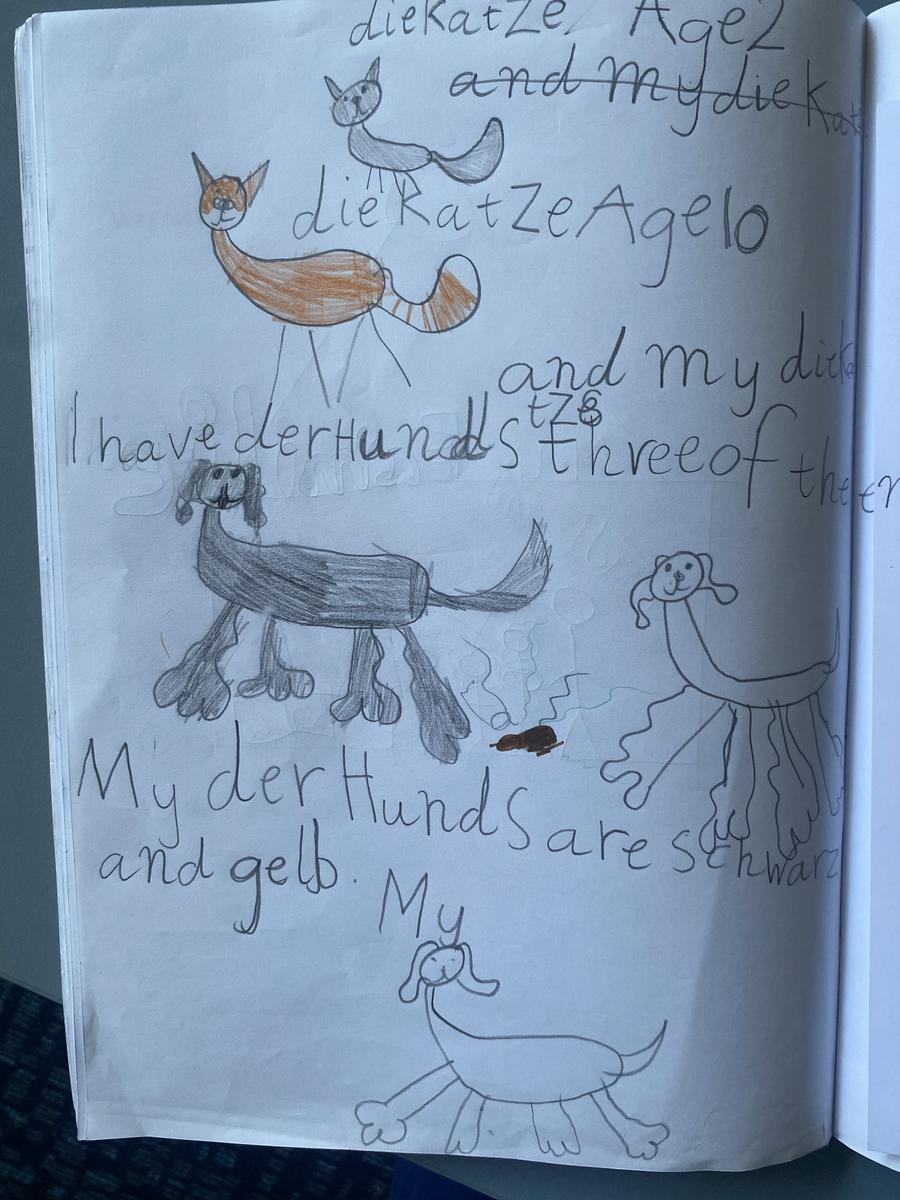 diekatze Age2
and my die Kat
diekatze Age10
and my dieka
tze
I have derHunds three of them
My der Hunds are schwarz
and gelb.
My